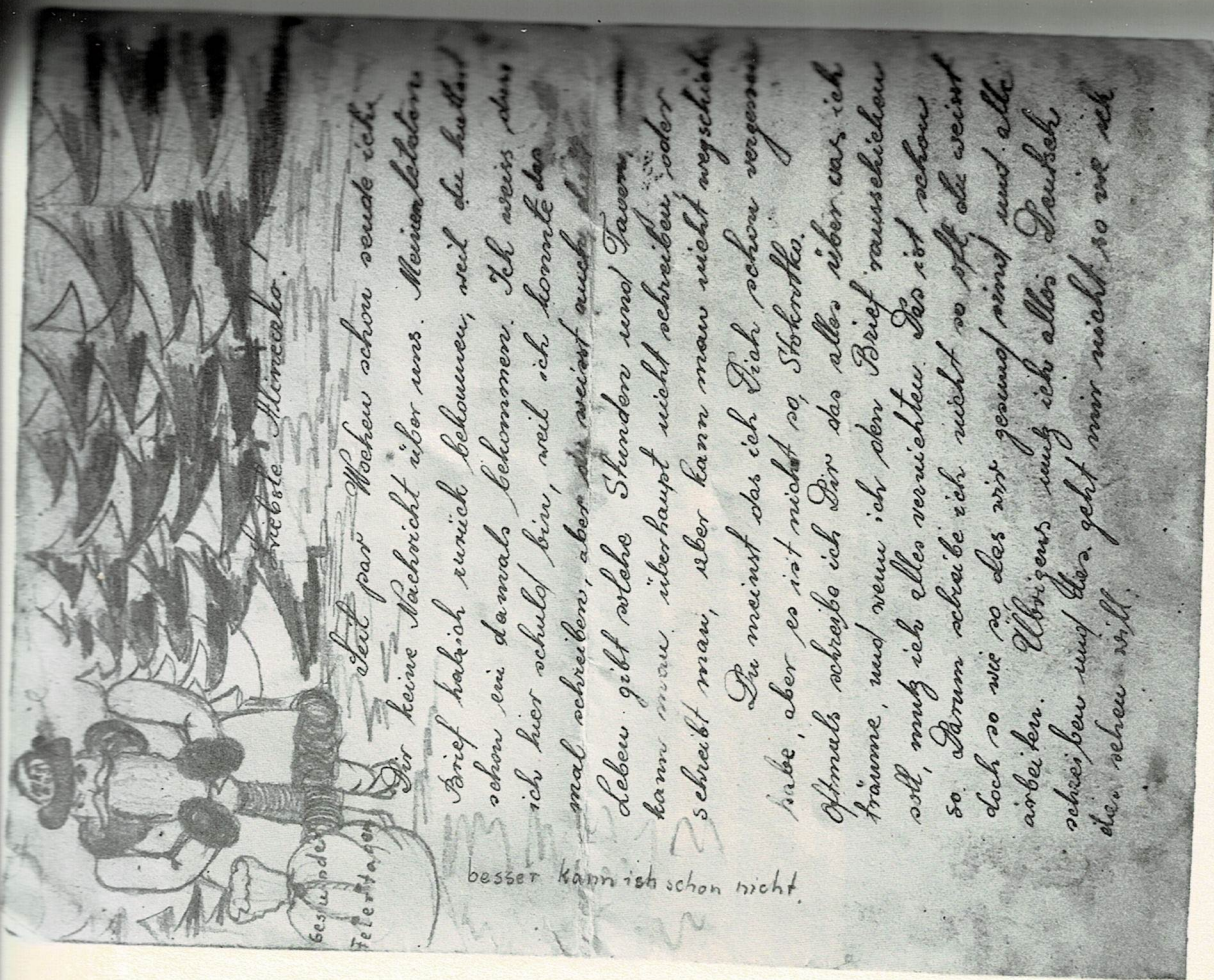 Liebste Alineczko.
Seit par Wochen schon sende ich
Dir keine Nachricht über uns. Meinen letzten
Brief hab ich zurück bekommen, weil du hattest
schon ein damals bekommen. Ich weiss dass
ich hier schuld bin, weil ich konnte das
mal schreiben, aber du weisst auch die
Leben gibt solche Stunden und Tasen,
kann man überhaupt nicht schreiben oder
schreibt man, aber kann man nicht wegschick
Du meinst das ich Dich schon vergessen
habe, aber es ist nicht so, Stokrotko.
Oftmals schreibe ich Dir das alles über was ich
träume, und wenn ich den Brief rausschicken
soll, mutz ich alles vernichten. Das ist schon
so. Darum schreibe ich nicht so oft du weisst
doch so wie so das wir gesund sind und alle
arbeiten. Übrigens mutz ich alles Deutsch
schreiben und dies geht mir nicht so wie ich
schon will.
gesunder
Feiertagen
besser kann ich schon nicht.